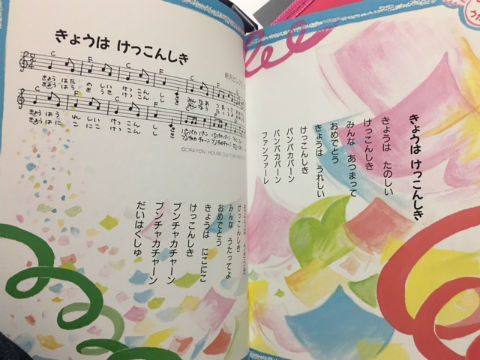 きょうは けっこんしき
C F C
きょう は た の し い け っ こん し き
きょう は う れ し い け っ こん し き
CRAYON HOUSE CULTURE
きょうは けっこんしき
きょうは たのしい
けっこんしき
みんな あつまって
おめでとう
きょうは うれしい
けっこんしき
パンパカパーン
パンパカパーン
ファンファーレ
けっこんしき
みんな うたってよ
おめでとう
きょうは にこにこ
けっこんしき
ブンチャカチャーン
ブンチャカチャーン
だいはくしゅ